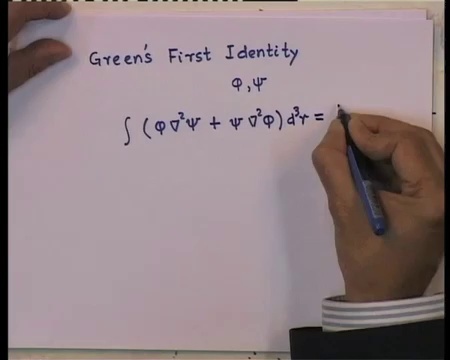 Green's First Identity
φ, ψ
∫ (φ∇²ψ + ψ∇²φ) d³r =